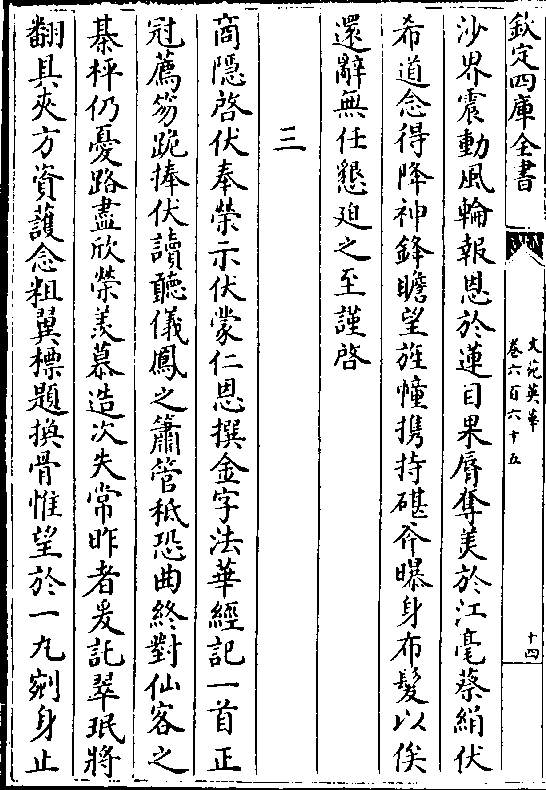 欽定四庫全書
文苑英華
卷六百六十五
十四
沙界震動風輪報恩於蓮目果脣奪美於江毫蔡絹伏
希道念得降神鋒瞻望旌幢攜持碪斧曝身布髮以俟
還辭無任懇迫之至謹啓
三
商隱啓伏奉榮示伏蒙仁恩撰金字法華經記一首正
冠薦笏跪捧伏讀聽儀鳳之簫管秪恐曲終對仙客之
棊枰仍憂路盡欣榮羨慕造次失常昨者爰託翠珉將
翻具夾方資護念粗冀標題換骨惟望於一九剜身止